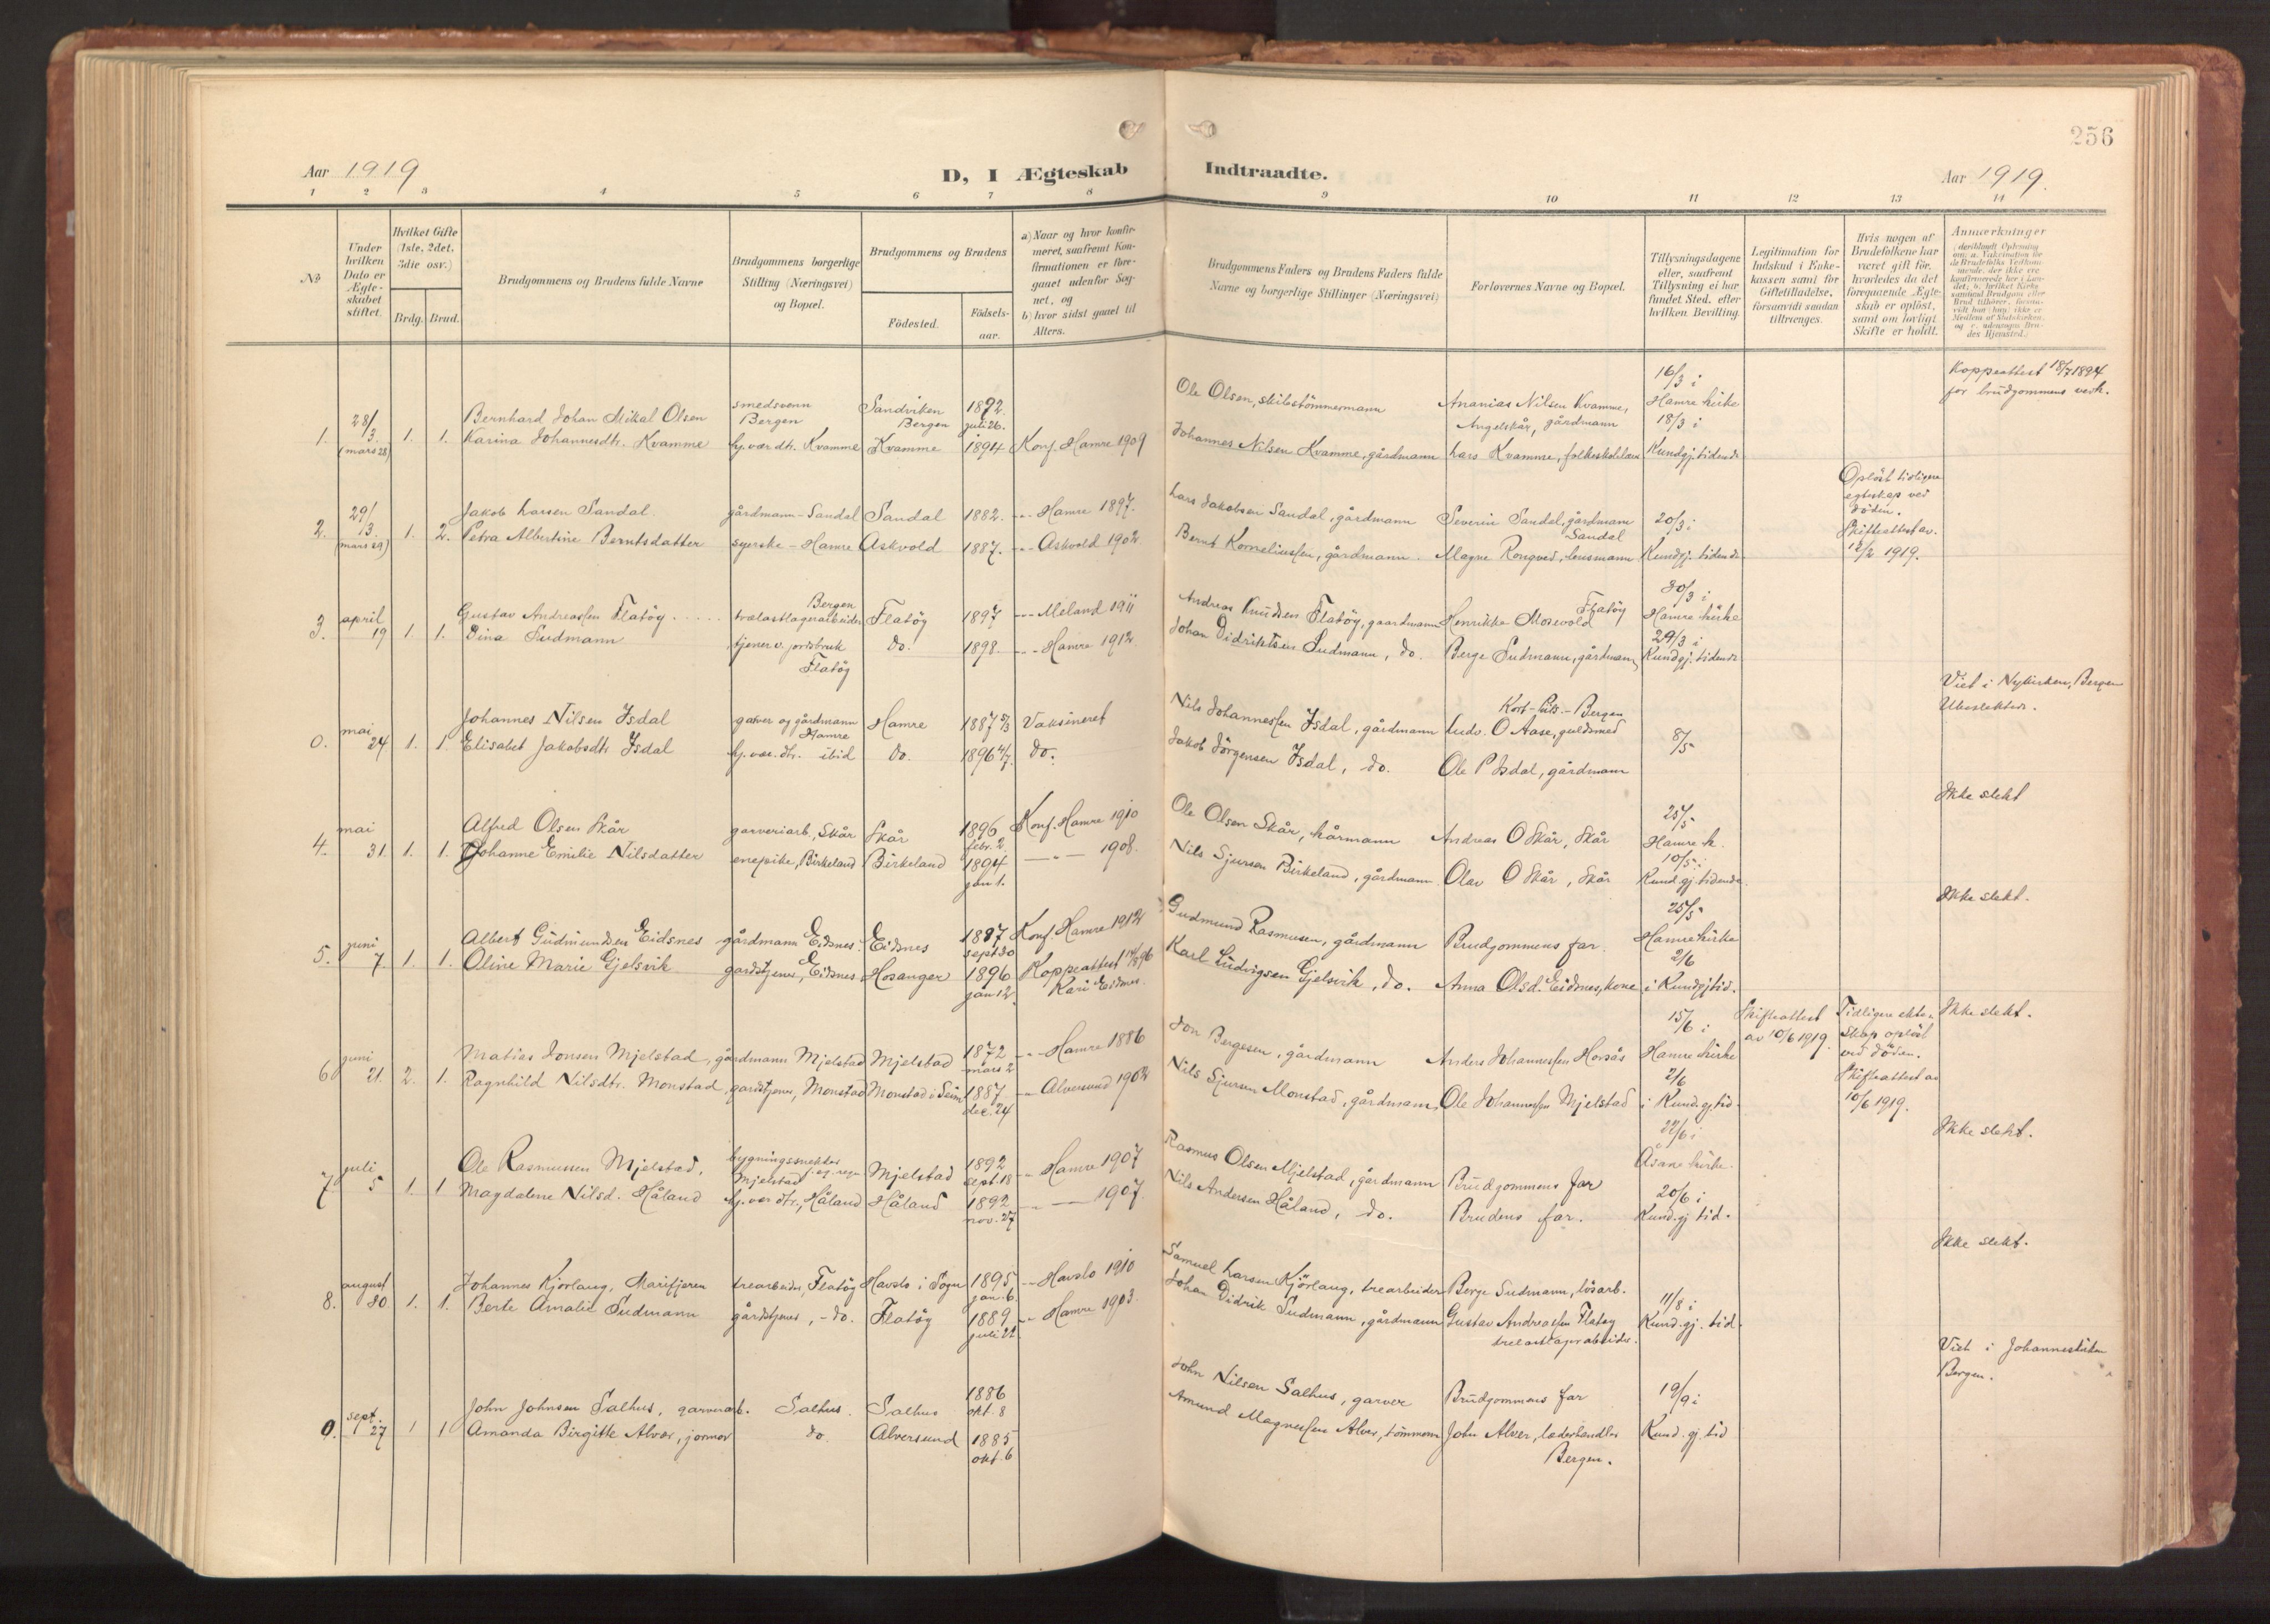 256
Aar 1919
D, I Ægteskab
Indtraadte.
Aar 1919.
1 2 3 4 5 6 7 8 9 10 11 12 13 14
No
Under hvilken Dato er Ægteskabet stiftet.
Hvilket Gifte (1ste, 2det, 3die osv.)
Brdg. Brud.
Brudgommens og Brudens fulde Navne
Brudgommens borgerlige Stilling (Næringsvei) og Bopæl.
Brudgommens og Brudens
Fødested.
Fødselsaar.
a) Naar og hvor konfirmeret, saafremt Konfirmationen er foregaaet udenfor Sognet, og
b) hvor sidst gaaet til Alters.
Brudgommens Faders og Brudens Faders fulde Navne og borgerlige Stillinger (Næringsvei)
Forlovernes Navne og Bopæl.
Tillysningsdagene eller, saafremt Tillysning ei har fundet Sted, efter hvilken Bevilling.
Legitimation for Indskud i Enkekassen samt for Giftetilladelse, forsaavidt saadan tiltrænges.
Hvis nogen af Brudefolkene har været gift før, hvorledes da det foregaaende Ægteskab er opløst, samt om lovligt Skifte er holdt.
Anmærkninger
1. 28/3. (mars 28) 1. 1.
Bernhard Johan Mikal Olsen smedsvenn Bergen Sandviken Bergen 1892. juli 26.
Karina Johannesdtr. Kvamme hj.vær. dtr. Kvamme Kvamme 1894 Konf. Hamre 1909
Ole Olsen, skibstömmermann
Johannes Nilsen Kvamme, gårdmann
Ananias Nilsen Kvamme, Angelskår, gårdmann
Lars Kvamme,
16/3 i Hamre kirke
18/3 i Kundgj. tidende
Koppeattest 18/7 1894 for brudgommens vedk.
2. 29/3. (mars 29) 1. 2.
Jakob Larsen Sandal. gårdmann - Sandal Sandal 1882. - Hamre 1897.
Petra Albertine Berntsdatter syerske - Hamre Askvold 1887. - Askvold 1902
Lars Jakobsen Sandal, gårdmann
Bernt Korneliussen, gårdmann.
Severin Sandal, gårdmann Sandal
Magne Rongved, lensmann
20/3 i Kundgj. tidende
Opløst tidligere egteskap ved døden. Skifteattest av. 12/2 1919.
3. april 19 1. 1.
Gustav Andreassen Flatöy Bergen trælastlagerarbeider Flatöy 1897 - Meland 1911
Dina Sudmann tjener v. jordbruk Flatöy do. 1898. - Hamre 1912.
Andreas Knudsen Flatöy, gaardmann
Johan Didriksen Sudmann, do.
Henrikke Mosevold Flatöy
Berge Sudmann, gårdmann,
30/3 i Hamre kirke
29/3 i Kundgj. tidende
0. mai 24 1. 1.
Johannes Nilsen Isdal garver og gårdmann Hamre Hamre 1887 5/3 Vaksineret
Elisabet Jakobsdtr Isdal hj. vær. dtr. ibid do. 1896 4/7. do.
Nils Johannessen Isdal, gårdmann
Jakob Jörgensen Isdal, do.
Ludv. O Aase, guldsmed Bergen
Ole P Isdal, gårdmann
8/5
Viet i Nykirken, Bergen
4. mai 31. 1. 1.
Alfred Olsen Skår garveriarb., Skår Skår 1896 febr. 2 Konf. Hamre 1910
Johanne Emilie Nilsdatter enepike, Birkeland Birkeland 1894 jan 1. - 1908.
Ole Olsen Skår, kårmann
Nils Sjursen Birkeland, gårdmann
Andreas O Skår, Skår
Olav O Skår, Skår
25/5 Hamre k.
10/5 i Kund.gj. tidende
Ikke slekt
5. juni 7. 1. 1.
Albert Gudmundsen Eidsnes gårdmann Eidsnes. Eidsnes 1887 sept 30 Konf. Hamre 1912
Oline Marie Gjelsvik gårdstjener, Eidsnes Hosanger 1896 jan 12. Koppeattest Kari Eidsnes.
Gudmund Rasmusen, gårdmann
Karl Ludvigsen Gjelsvik, do.
Brudgommens far.
Anna Olsd. Eidsnes, kone
25/5 Hamre kirke
2/6 i Kundgj tid.
Ikke slekt.
6 juni 21. 2. 1.
Matias Jonsen Mjelstad, gårdmann Mjelstad Mjelstad 1872 mars 2 - Hamre 1886
Ragnhild Nilsdtr. Monstad gardstjener, Monstad Monstad i Seim 1887 dec. 24 - Alversund 1902
Jon Bergesen, gårdmann
Nils Sjursen Monstad, gårdmann
Anders Johannessen Horsås
Ole Johannessen Mjelstad
15/6 i Hamre kirke
2/6 i Kund.gj. tid.
Skifteattest av 10/6 1919.
Tidligere ekteskap opløst ved døden. Skifteattest av 10/6 1919.
Ikke slekt.
7 juli 5 1. 1
Ole Rasmussen Mjelstad, bygningssnekker Mjelstad Mjelstad 1892 sept. 18 - Hamre 1907
Magdalene Nilsd. Håland hj. vær dtr., Håland Håland 1892 nov. 27 - 1907.
Rasmus Olsen Mjelstad, gårdmann
Nils Andersen Håland, do.
Brudgommens far
Brudens far.
22/6 i Åsane kirke.
20/6 i Kund.gj tid.
Ikke slekt.
8. august 30. 1. 1.
Johannes Kjørlaug, Marifjeren trearbeider, Flatöy Havslo i Sogn 1895 jan. 6. - Havslo 1910
Berte Amalie Sudmann gårdstjener, - do. Flatöy 1889 juli 22 - Hamre 1903.
Samuel Larsen Kjørlaug, trearbeider
Johan Didrik Sudmann, gårdmann
Berge Sudmann, lösarb.
Gustav Andreassen Flatöy
11/8 i Kund.gj. tid.
Ikke slekt.
0. sept. 27 1 1
John Johnsen Salhus, garverarb. Salhus. Salhus 1886 okt. 8
Amanda Birgitte Alver, jormor do. Alversund 1885 okt. 6
John Nilsen Salhus, garver
Amund Magnussen Alver, tömmerm
Brudgommens far
John Alver, læderhandler Bergen.
19/9 i Kund.gj. tid
Viet i Johanneskirken Bergen.